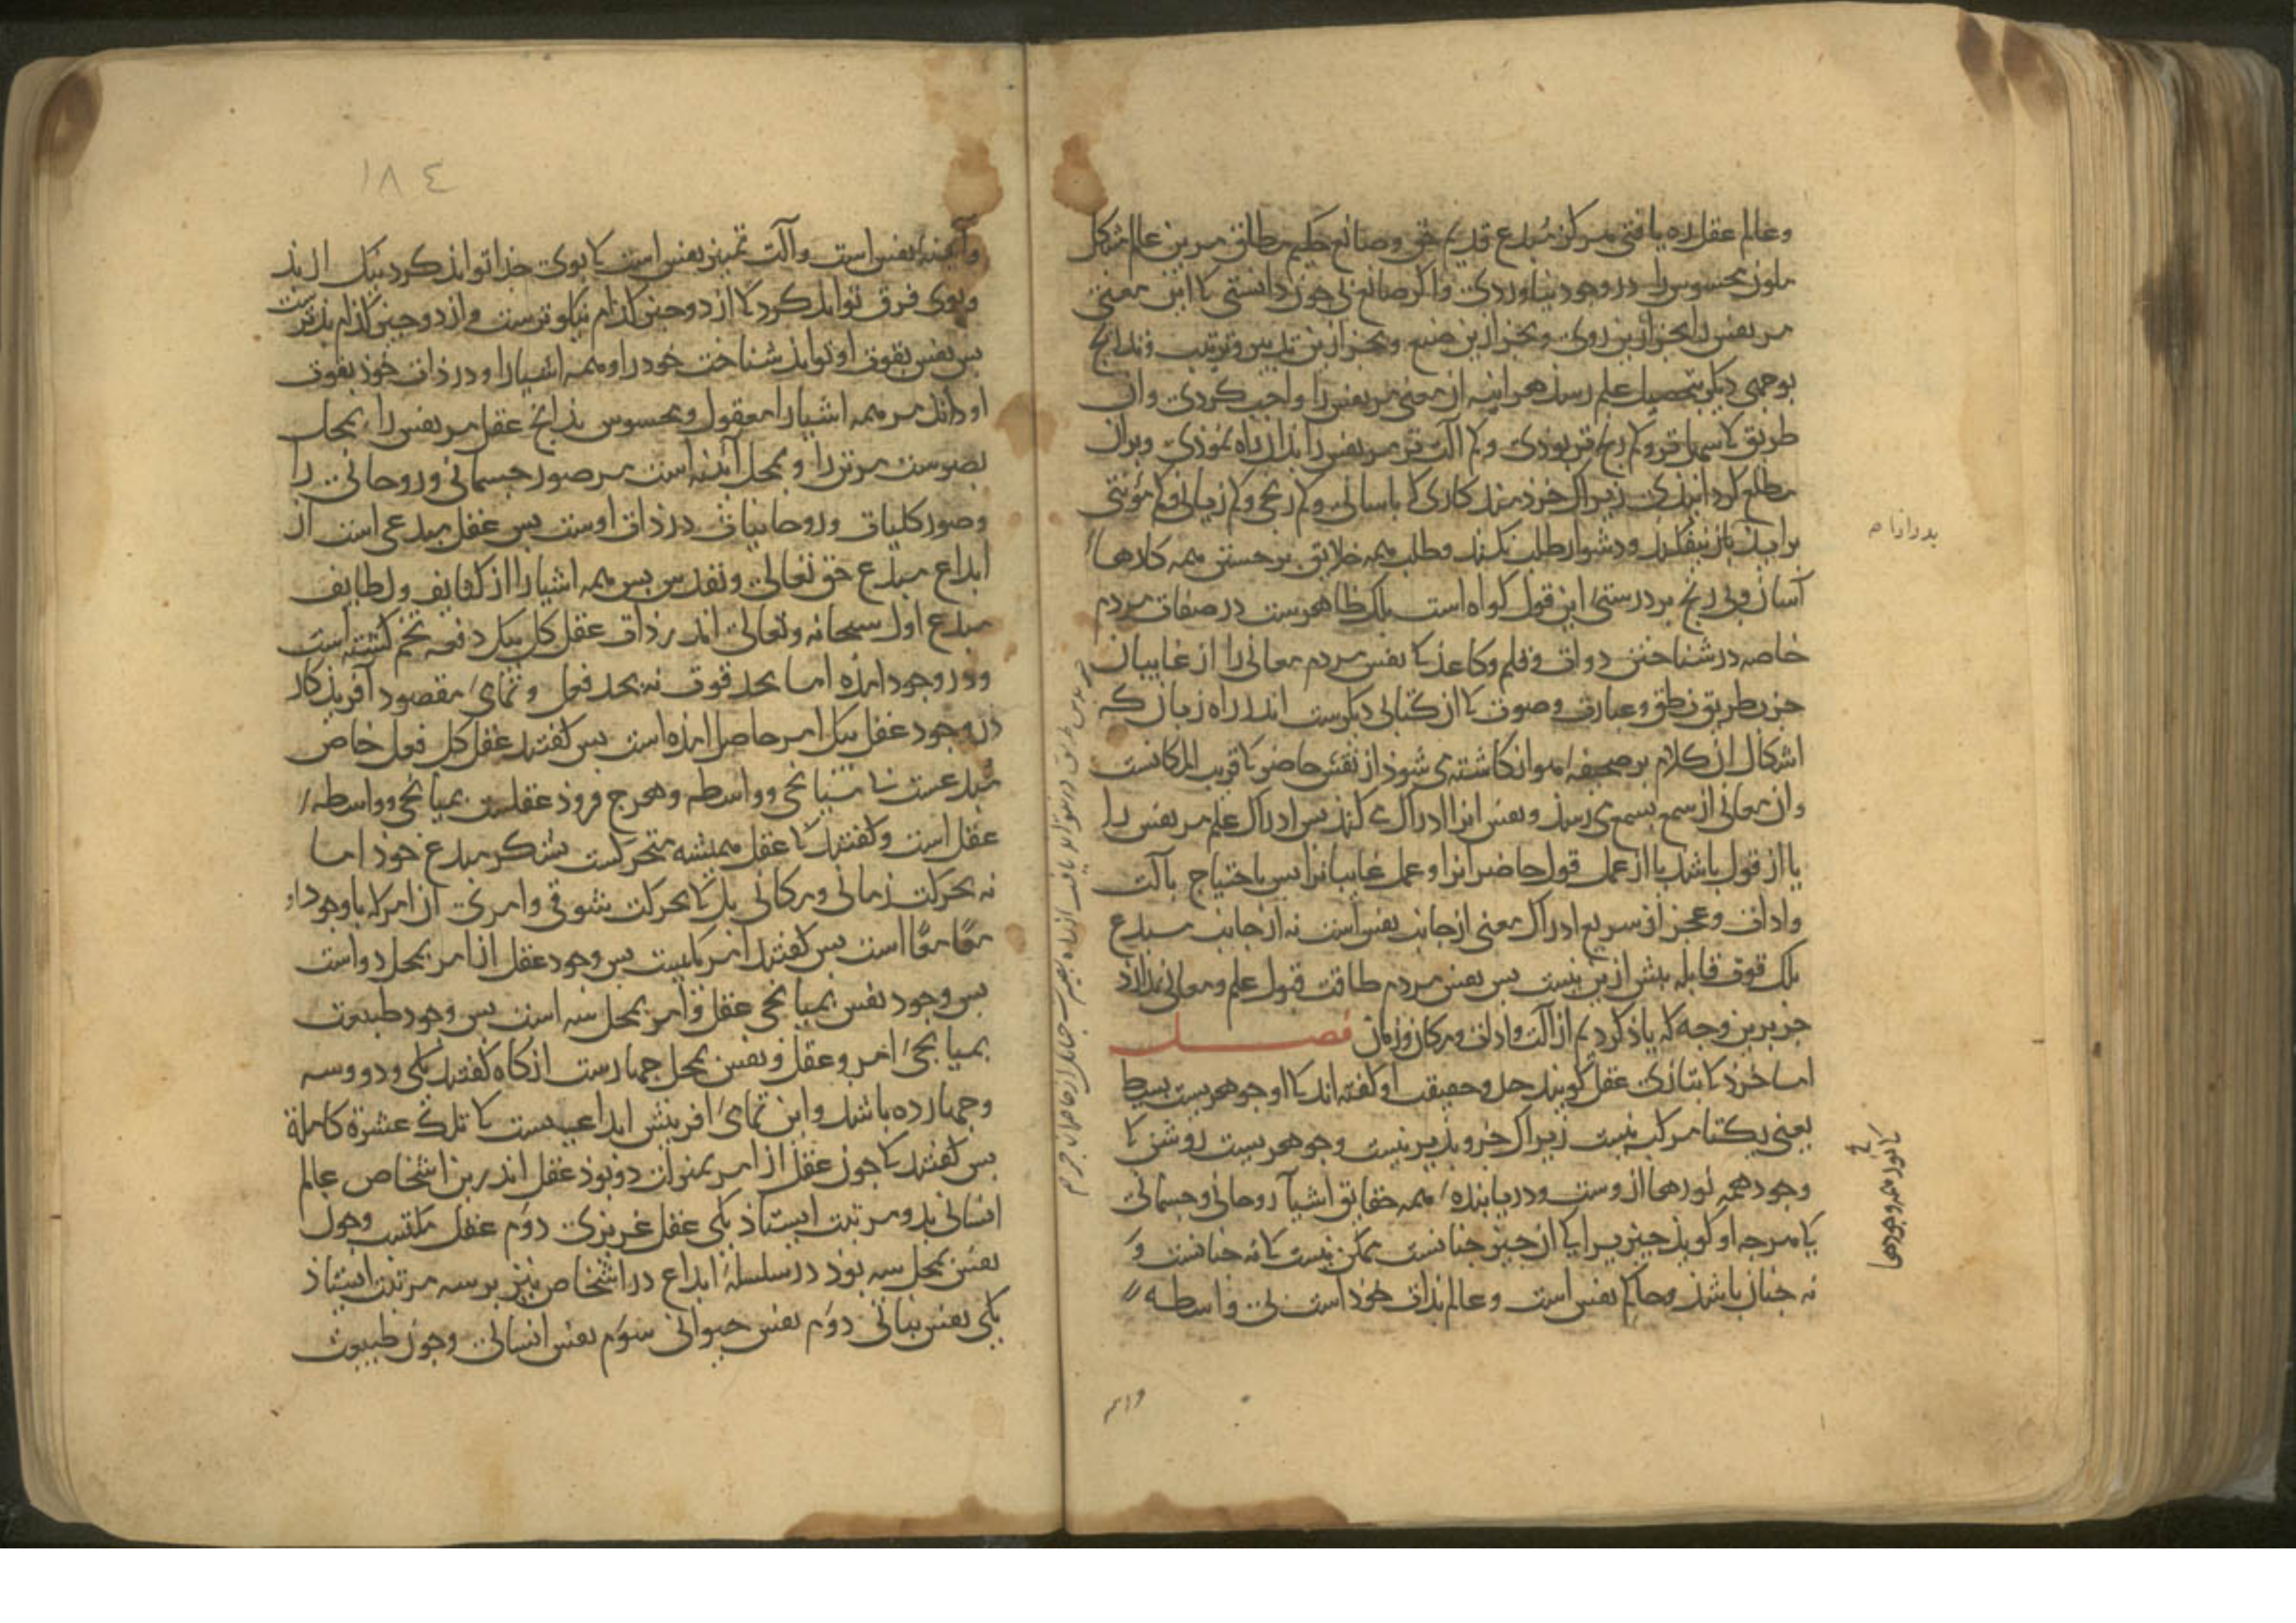 وعالم عقل ره یافتی هرکز مبدع قدیم حق وصانع حکیم مطلق مر بن عالم مشکل
ملون محسوس را در وجود نیاوردی واکر صانع بی جون دانستی کا این معنی
مر نفس را بجز ازین روی وبجز ازین صنع وبجز ازین تدبیر وترتیب وتدابیج
بوجهی دیکر بتحصیل علم رسد هر اینه از معنی مر نفس را واجب کردی وان
طریق کا سهل تر وکم رنج تر بودی وکم الت تر مر نفس را بدان راه نموذی وبران
مطلع کردانیذی زیراک خردمند کاری کا باسانی وکم رنجی وکم زیانی وکم مؤنتی
براید باز نیفکند ودشوار طلب نکند وطلب همه خلایق بر جستن همه کارها
آسان وبی رنج بر درستی این قول کواه است بلک ظاهرست در صفات مردم
خاصه در شناختن دوات وقلم وکاغذ کا نفس مردم معانی را از غایبان
جز بطریق نطق وعبارت وصوت کا از کتابی دیکرست اندر راه زبان که
اشکال ان کلام بر صحیفه هوا نکاشته می شوذ از نفس حاضر کا قریب المکانست
وان معانی از سمع بسمع می رسذ ونفس انرا ادراک می کند بس ادراک علم مر نفس را
یا از قول باشد یا از عمل قول حاضرانرا وعمل غایبانرا بس باحتیاج بآلت
وادات وعجز از سریع ادراک معنی از جانب نفس است نه از جانب مبدع
بلک قوت قابله بیش ازین نیست بس نفس مردم طاقت قبول علم ومعانی ندارد
جز برین وجه که یاذ کردیم از آلت وادات ومکان وزمان فصل
اما خرذ کا بتازی عقل کویند حد وحقیقت او کفته اند کا او جوهریست بسیط
یعنی یکتا مرکب نیست زیراک جزو بذیر نیست وجوهریست روشن کا
وجود همه نورها از وست ودریابنده همه حقایق اشیا روحانی وجسمانی
کا هرجه او کوید جیزیرا کا از جیز جنانست ممکن نیست کا نه جنانست و
نه جنان باشذ وحاکم نفس است وعالم بذات خوذ است بی واسطه
بدو اندام
کا نور همه وجودها
واىىه
١٨٤
وآینه نفس است وآلت تمیز نفس است کا بوی جذا تواند کرد نیک از بد
وبوی فرق تواند کرد کا از دو جیز کذام نیکوترست واز دو جیز کذام بذترست
بس نفس بقوت او تواند شناخت خود را وهمه اشیا را ودر ذات خوذ بقوت
او داند مر همه اشیا را معقول ومحسوس بذانج عقل مر نفس را بمحل
بصرست مر تن را وبمحل آینه است مر صور جسمانی وروحانی را
وصور کلیات وروحانیات در ذات اوست بس عقل مبدعی است از
ابداع مبدع حق تعالی وتقدس بس همه اشیا را از کثایف ولطایف
مبدع اول سبحانه وتعالی اندر ذات عقل کل بیک دفعه تخم کشته است
ودر وجود امذه اما بحد قوت نه بحد فعل وتمامی مقصود آفریذکار
در وجود عقل بیک امر حاصل امذه است بس کفتند عقل کل فعل خاص
مبدعست بی میانجی وواسطه وهرج فروذ عقلست بمیانجی وواسطه
عقل است وکفتند کا عقل همیشه متحرکست بشکر مبدع خوذ اما
نه بحرکت زمانی ومکانی بل کا بحرکت شوقی وامری ان امر که با وجود او
معًا معًا است بس کفتند امر یکیست بس وجود عقل از امر بمحل دو است
بس وجود نفس بمیانجی عقل وامر بمحل سه است بس وجود طبیعت
بمیانجی امر وعقل ونفس بمحل جهارست انکاه کفتند یکی ودو وسه
وجهار ده باشد واین تمامی افرینش ابداعیست کا تلک عشرة کاملة
بس کفتند کا جون عقل از امر بمنزلت دو بوذ عقل اندرین اشخاص عالم
انسانی بدو مرتبت ایستاذ یکی عقل غریزی دوم عقل مکتسب وجون
نفس بمحل سه بوذ در سلسلة ابداع در اشخاص نیز بر سه مرتبت ایستاذ
یکی نفس نباتی دوم نفس حیوانی سوم نفس انسانی وجون طبیعت